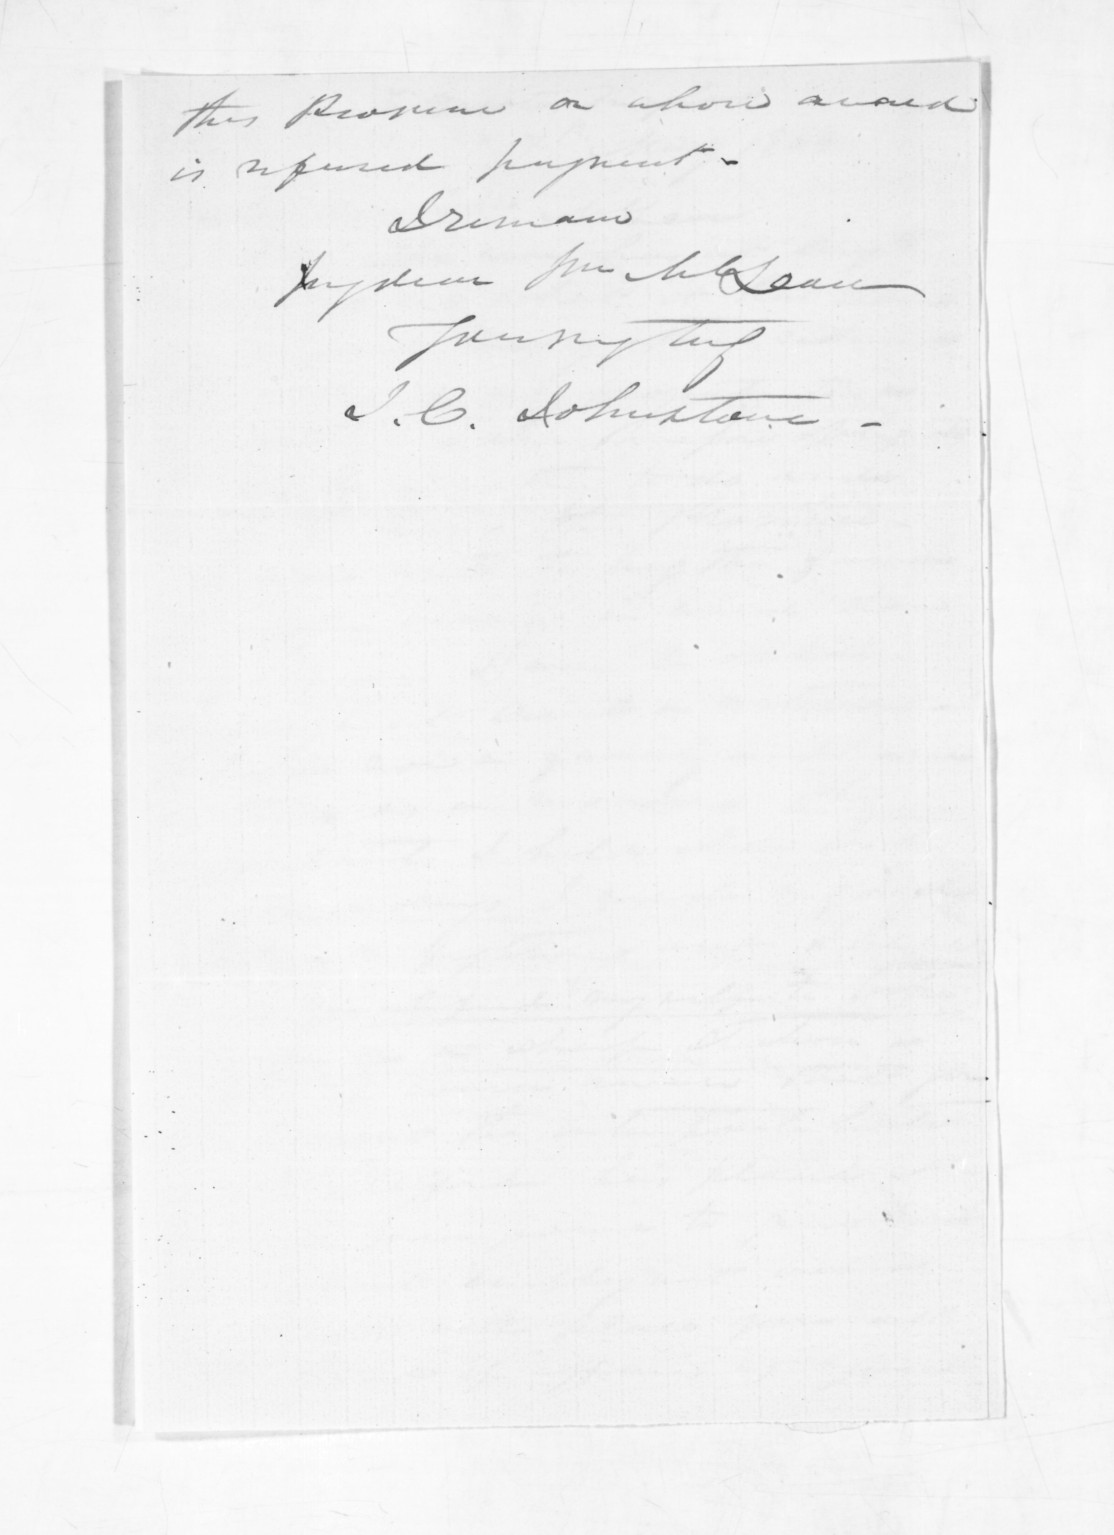 this Province on whose award
is refused payment -
I remain
My dear Mr McLean
Yours very truly
J. C. Johnstone -